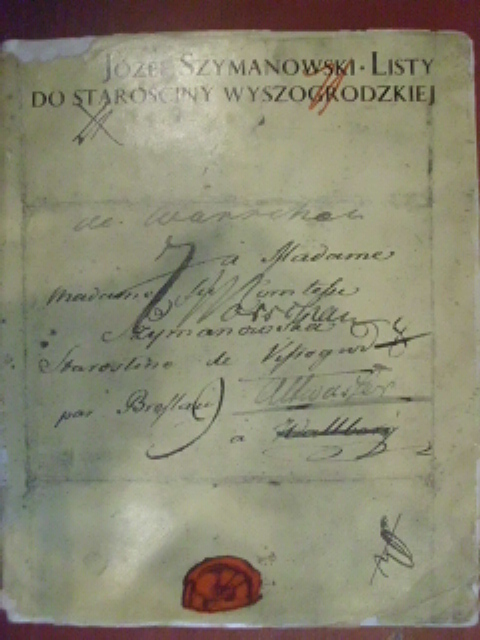 JÓZEF SZYMANOWSKI · LISTY
DO STAROŚCINY WYSZOGRODZKIEJ
de Warschau
à Madame
Madame la Comtesse
Warschau
Szymanowska
Starostine de
par Breslau Altwasser
a